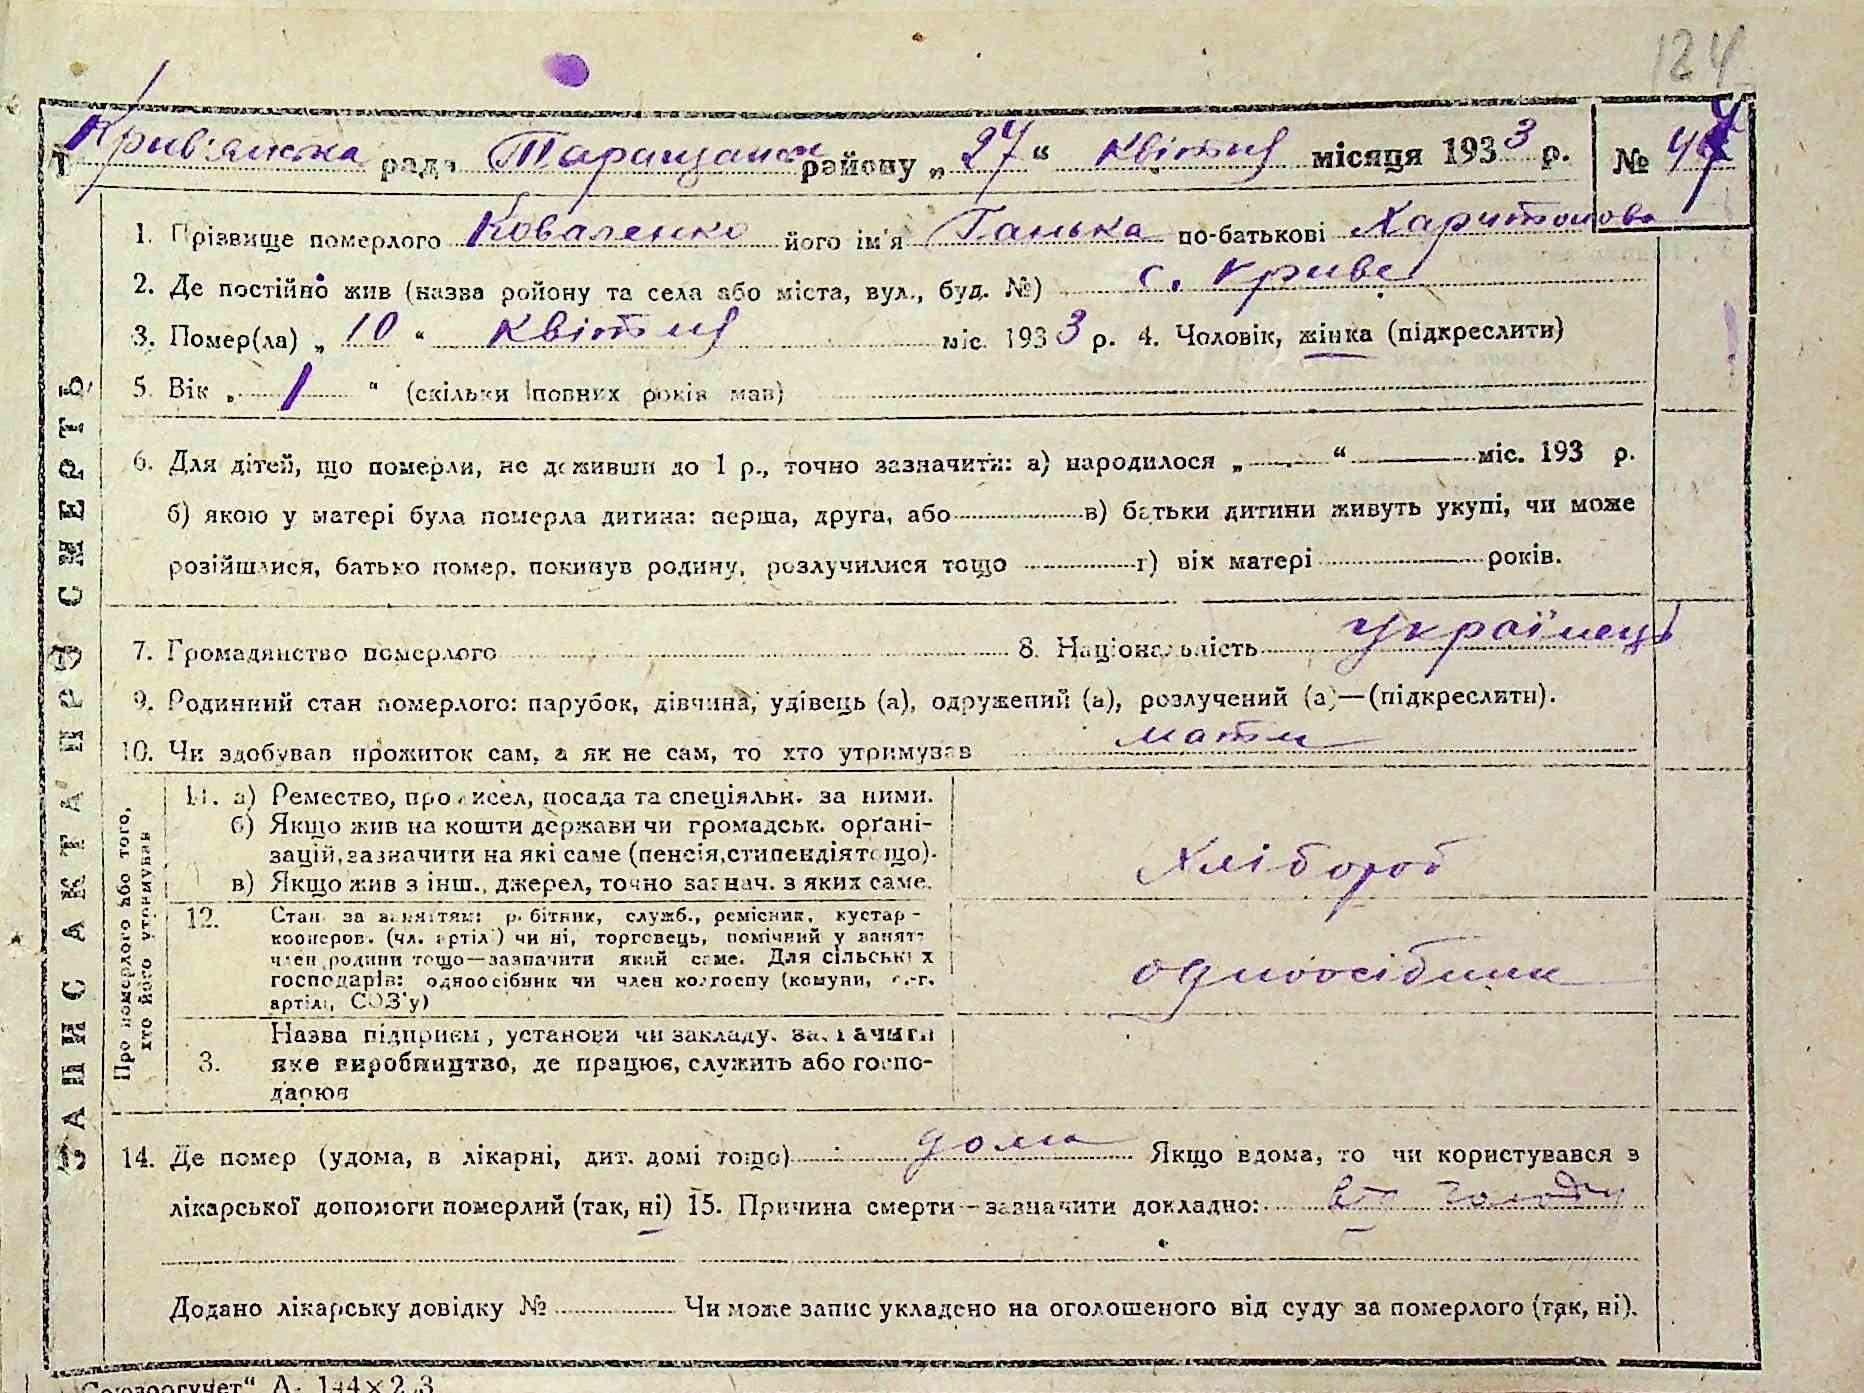 124
Крив'янська рада Таращанськ району „27“ Квітня місяця 1933 р. №
1. Прізвище померлого Коваленко його ім'я Ганька по-батькові Харитонова
2. Де постійно жив (назва району та села або міста, вул., буд. №) с. Криве
3. Помер(ла) „10“ Квітня міс. 1933 р. 4. Чоловік, жінка (підкреслити)
5. Вік „1“ (скільки повних років мав)
6. Для дітей, що померли, не доживши до 1 р., точно зазначити: а) народилося „ “ міс. 193 р.
б) якою у матері була померла дитина: перша, друга, або в) батьки дитини живуть укупі, чи може
розійшлися, батько помер, покинув родину, розлучилися тощо г) вік матері років.
7. Громадянство померлого 8. Національність українець
9. Родинний стан померлого: парубок, дівчина, удівець (а), одружений (а), розлучений (а)—(підкреслити).
10. Чи здобував прожиток сам, а як не сам, то хто утримував мати
ЗАПИС АКТА ПРО СМЕРТЬ
Про померлого або того,
хто його утримував
11. а) Ремество, промисел, посада та спеціяльн. за ними.
б) Якщо жив на кошти держави чи громадськ. органі-
зацій, зазначити на які саме (пенсія, стипендія тощо).
в) Якщо жив з інш., джерел, точно зазнач. з яких саме.
Хлібороб
12. Стан за заняттям: робітник, служб., ремісник, кустар-
кооперов. (чл. артілі) чи ні, торговець, помічний у занятт
член родини тощо—зазначити який саме. Для сільських
господарів: одноосібник чи член колгоспу (комуни, с.-г.
артілі, СОЗ'у)
одноосібник
3. Назва підприєм., установи чи закладу. зазначити
яке виробництво, де працює, служить або госпо-
дарює
14. Де помер (удома, в лікарні, дит. домі тощо) дома Якщо вдома, то чи користувався з
лікарської допомоги померлий (так, ні) 15. Причина смерти—зазначити докладно: від голоду
Додано лікарську довідку № Чи може запис укладено на оголошеного від суду за померлого (так, ні).